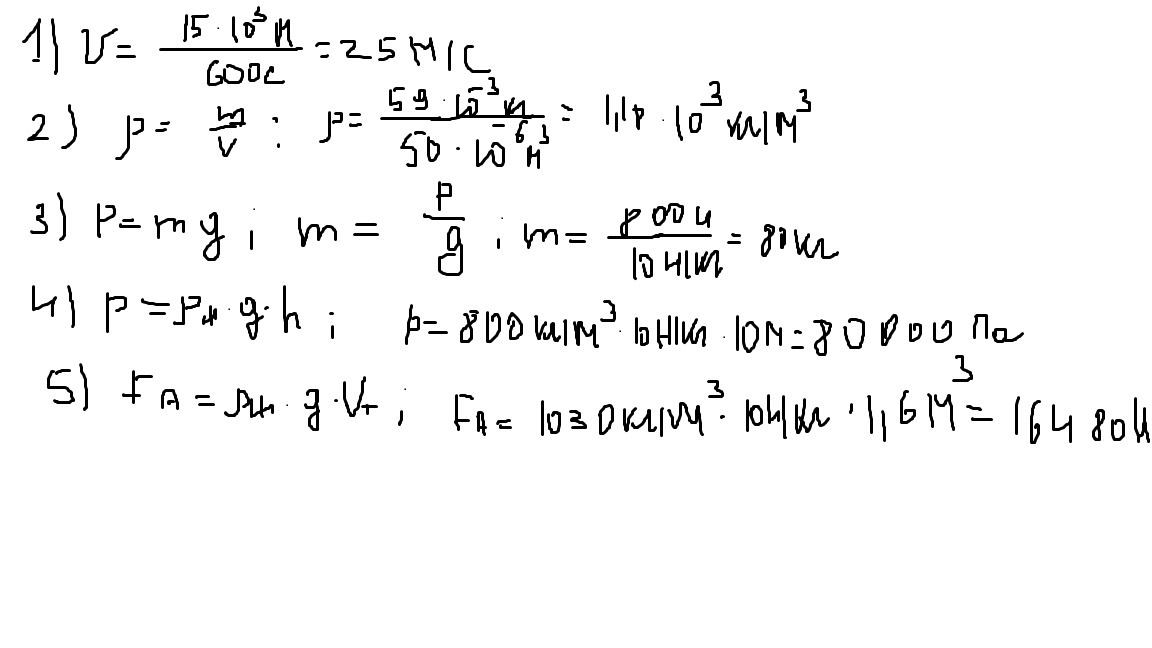 1) V = 15 · 10³ м / 600 с = 25 м/с
2) ρ = m / V ; ρ = 59 · 10⁻³ кг / 50 · 10⁻⁶ м³ = 1,18 · 10³ кг/м³
3) P = mg ; m = P / g ; m = 800 н / 10 н/кг = 80 кг
4) P = ρж · g · h ; p = 800 кг/м³ · 10 н/кг · 10 м = 80 000 Па
5) FА = ρж · g · Vт ; FА = 1030 кг/м³ · 10 н/кг · 1,6 м³ = 16480 н